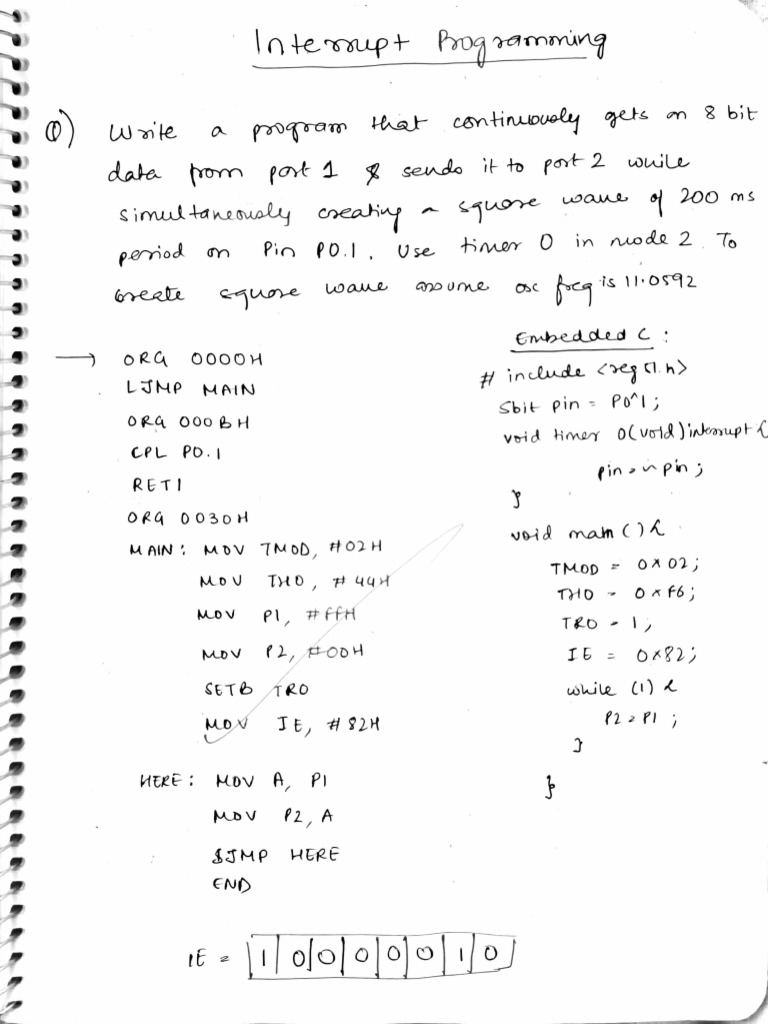 Interrupt Programming
①) Write a program that continuously gets an 8 bit
data from port 1 & sends it to port 2 while
simultaneously creating a square wave of 200 ms
period on Pin P0.1. Use timer 0 in mode 2. To
create square wave assume osc freq is 11.0592
→ ORG 0000H
LJMP MAIN
ORG 000BH
CPL P0.1
RETI
ORG 0030H
MAIN: MOV TMOD, #02H
MOV TH0, #44H
MOV P1, #FFH
MOV P2, #00H
SETB TR0
MOV IE, #82H
HERE: MOV A, P1
MOV P2, A
SJMP HERE
END
Embedded C :
# include <reg51.h>
Sbit pin = P0^1;
void timer 0(void)interrupt {
pin = ~ pin ;
}
void main () {
TMOD = 0x02;
TH0 = 0xF6;
TR0 = 1;
IE = 0x82;
while (1) {
P2 = P1 ;
}
}
IE = 1 0 0 0 0 0 1 0